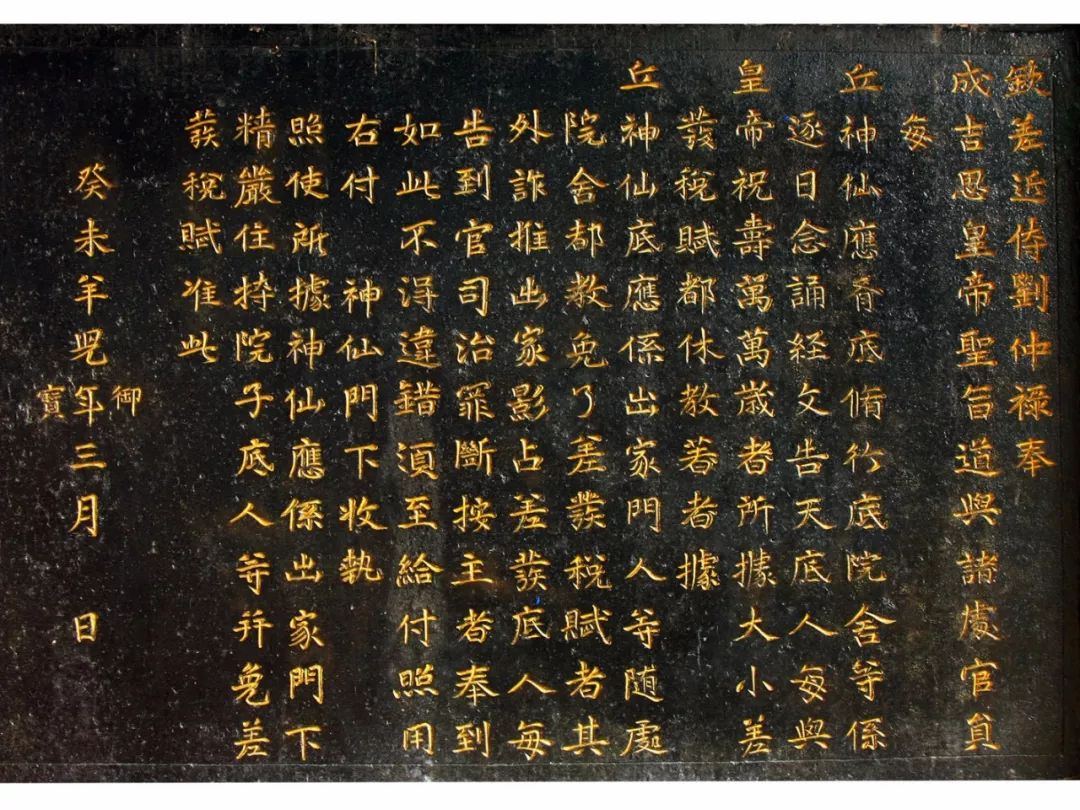 欽差近侍劉仲禄奉
成吉思皇帝聖旨道與諸處官員
每
丘神仙應有底脩行底院舍等係
逐日念誦経文告天底人每與
皇帝祝壽萬萬歲者所據大小差
發稅賦都休教著者據
丘神仙底應係出家門人等随處
院舍都教免了差發稅賦者其
外詐推出家影占差發底人每
告到官司治罪斷按主者奉到
如此不得違錯須至給付照用
右付　神仙門下收執
照使所據神仙應係出家門下
精嚴住持院子底人等并免差
發稅賦准此
御
癸未羊兒年三月　日
寶